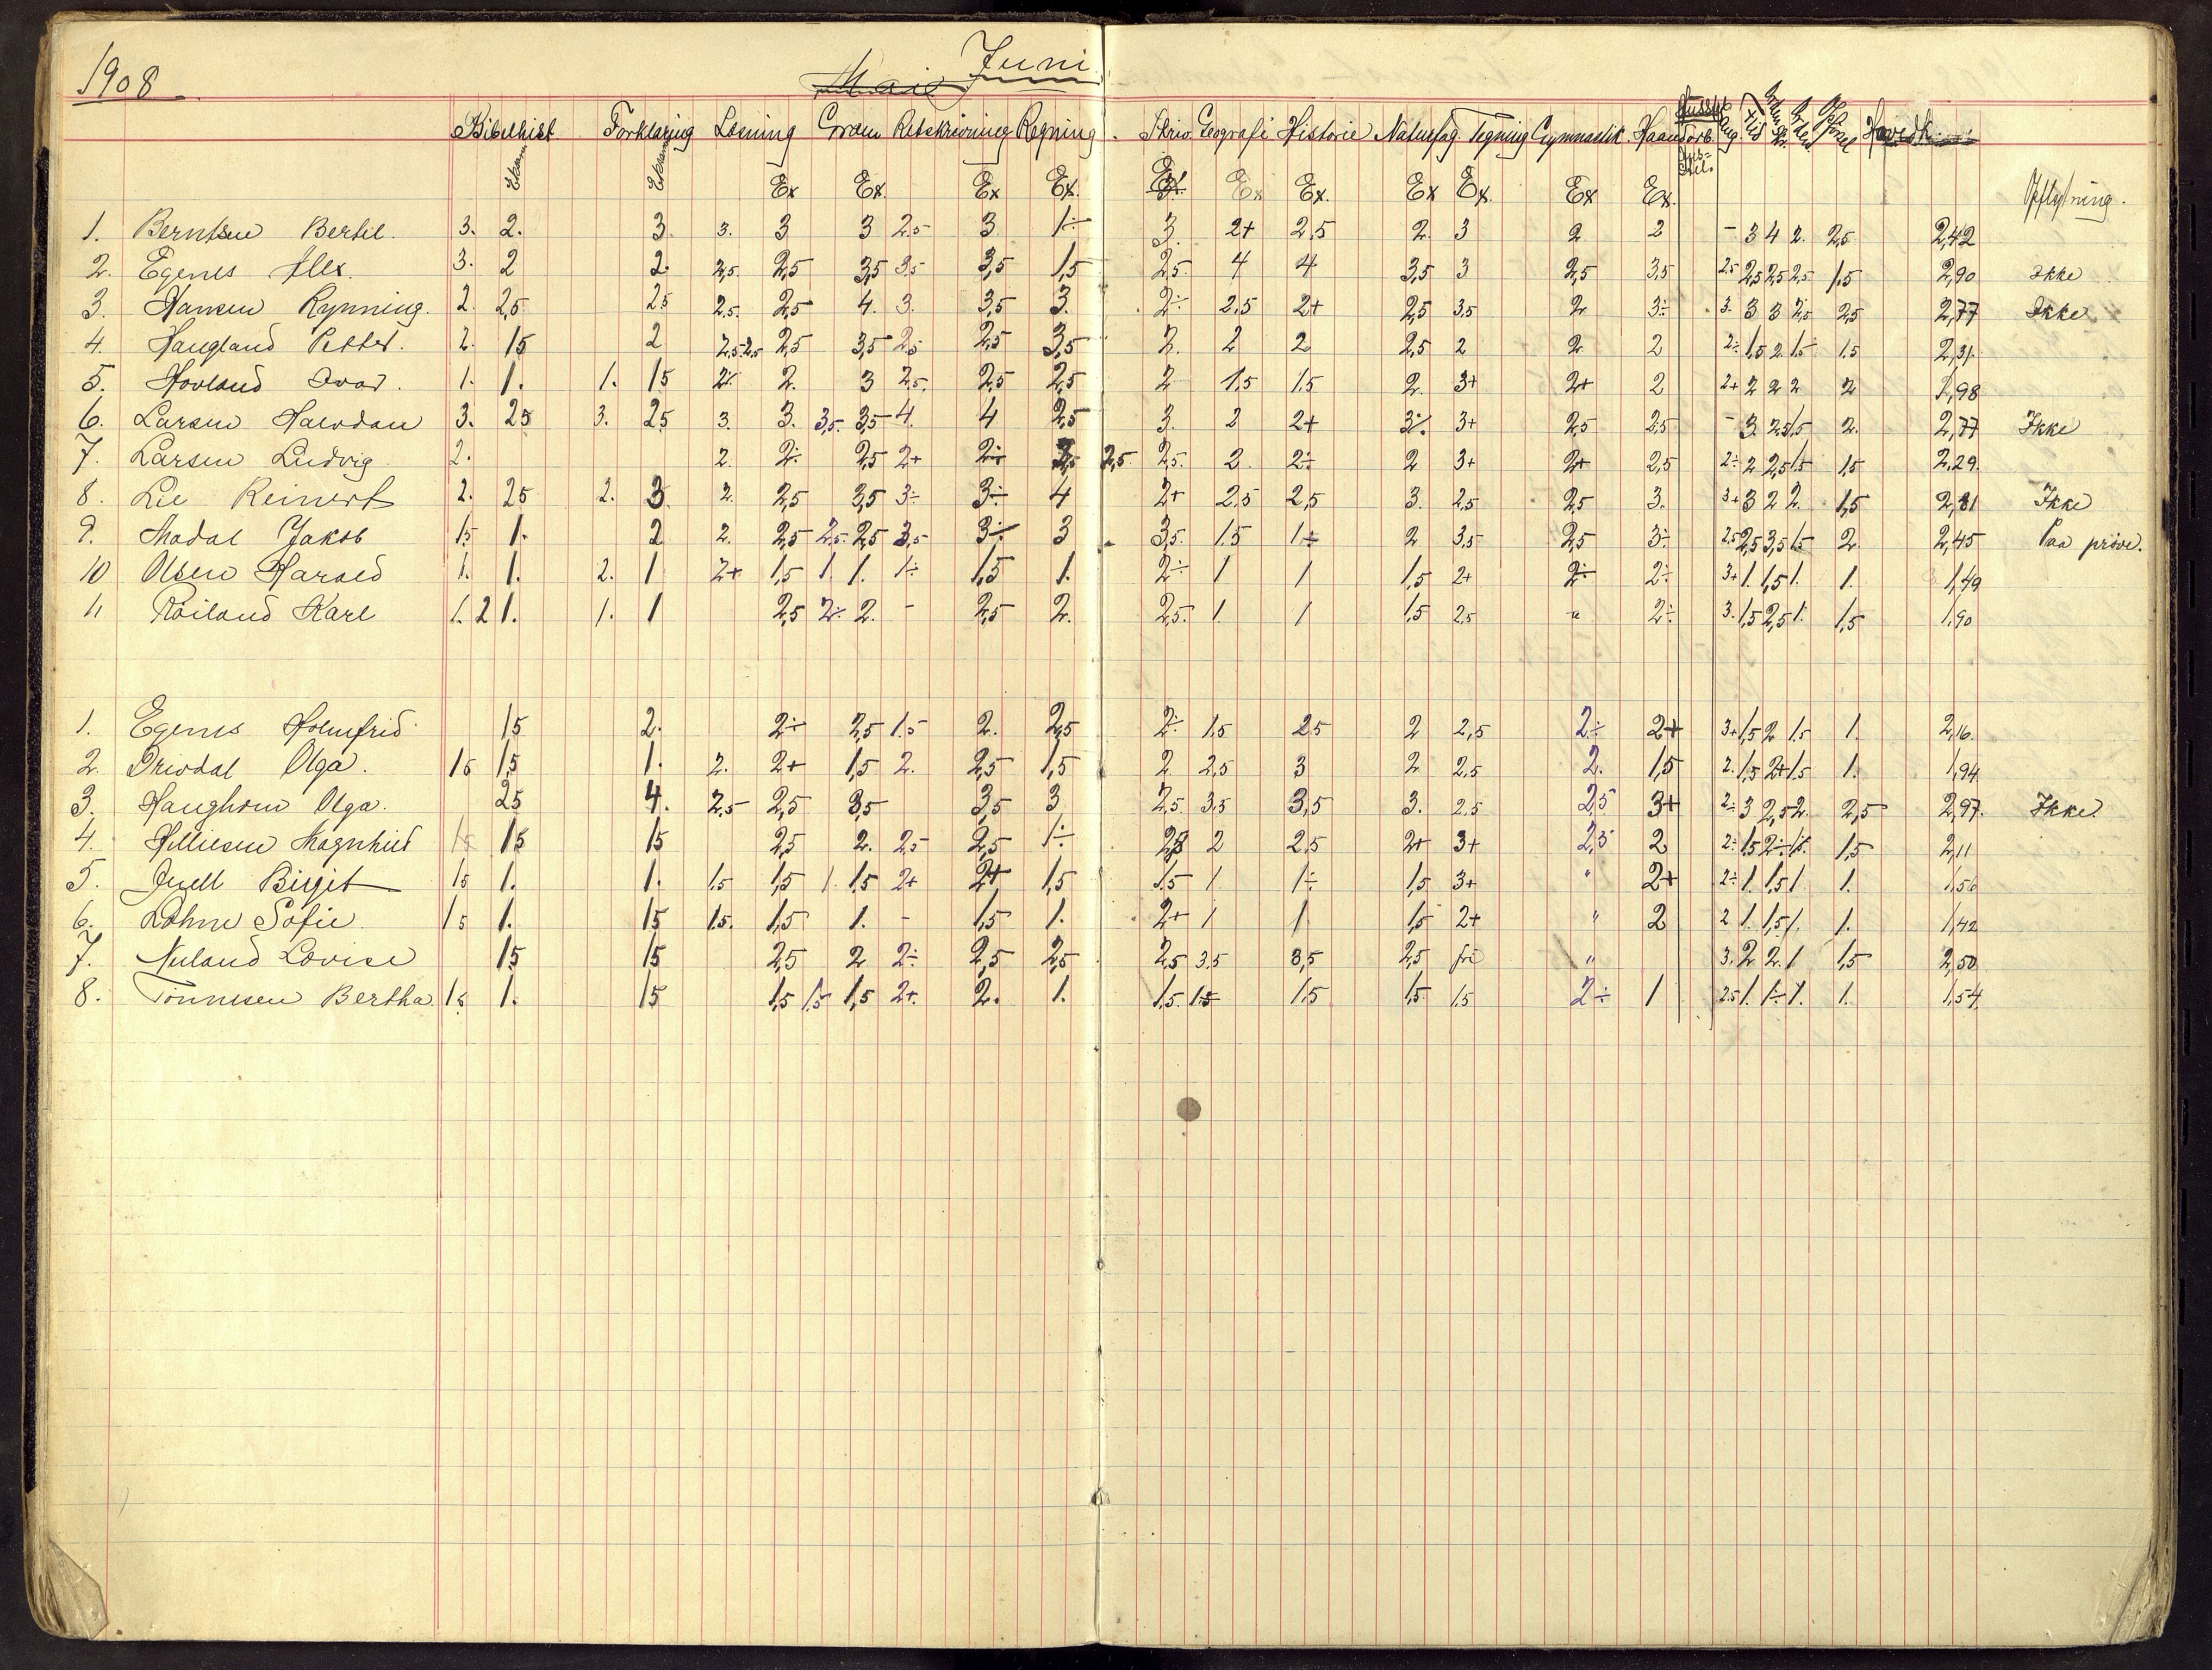 1908
Mai Juni
Bibelhist Forklaring Læsning Gram Retskrivning Regning Skriv. Geografi Historie Naturfag Tegning Gymnastik Haandarb. Flid Opførsel Hovedk
Eksam Eksam Ex Ex. Ex Ex. Ex. Ex Ex. Ex Ex. Ex Ex. Opflytning.
1. Berntsen Bertil. 3. 2. 3 3. 3 3 2.5 3 1÷ 3. 2+ 2,5 2. 3 2 2 - 3 4 2. 2,5 2,42
2. Egenes Alex. 3. 2 2. 2,5. 2,5 3,5 3,5 3,5 1,5 2,5. 4 4 3,5 3 2,5 3,5 2.5 2,5 2,5 2,5 1.5 2,90 Ikke
3. Hansen Rynning. 2. 2,5 2,5 2.5. 2,5 4. 3. 3,5 3. 2÷ 2.5 2+ 2,5 3,5 2 3÷ 3. 3 3 2,5 2,5 2,77 Ikke
4. Haugland Petter. 2. 1,5 2 2,5 2,5 2,5 3,5 2,5 2,5 3,5 2. 2 2 2,5 2 2 2 2÷ 1,5 2 1,5 1.5 2,31.
5. Hovland Ivar. 1. 1. 1. 1,5 2÷ 2. 3 2,5. 2,5 2,5 2 1.5 1.5 2. 3+ 2+ 2 2+ 2 2 2 2 1,98
6. Larsen Halvdan 3. 2,5 3. 2,5 3. 3. 3,5. 3,5 4. 4 2,5 3. 2 2+ 3÷ 3+ 2,5 2,5 - 3. 2,5 1,5 2. 2,77 Ikke
7. Larsen Ludvig 2. 2. 2÷ 2,5 2+ 2÷ 2,5 2,5. 2. 2÷ 2 3+ 2+ 2,5 2÷ 2 2,5 1.5 1,5 2,29.
8. Lie Reinert 2. 2,5 2. 3. 2. 2,5 3,5 3÷ 3÷ 4 2+ 2,5 2,5 3. 2,5 2,5 3. 3+ 3 2 2. 1,5 2,81 Ikke
9. Modal Jakob 1,5 1. 2 2. 2,5 2,5. 2,5 3,5 3÷ 3 3,5. 1.5 1÷ 2 3,5 2,5 3÷ 2.5 2,5 3,5 1,5 2. 2,45 Paa prøve.
10 Olsen Harald 1. 1. 2. 1 2+ 1,5 1. 1. 1÷ 1,5 1. 2÷ 1 1 1,5 2+ 2÷ 2÷ 3+ 1. 1,5 1. 1. 1,49
11 Røiland Karl 1. 2 1. 1. 1 2,5 2÷ 2. - 2,5 2. 2,5. 1. 1 1.5 2,5 " 2÷ 3. 1,5 2,5 1. 1,5 1,90
1. Egenes Holmfrid 1,5 2. 2÷ 2,5 1.5 2. 2,5 2÷ 1.5 2,5 2 2,5 2÷ 2+ 3+ 1,5 2 1.5 1. 2,16.
2. Drivdal Olga. 1,5 1,5 1. 2. 2+ 1,5 2. 2,5 1,5 2 2,5 3 2 2,5 2. 1,5 2. 1,5 2+ 1.5 1. 1,94
3. Haughom Olga. 2,5 4. 2,5 2,5 3,5 3,5 3 2,5 3.5 3,5 3. 2.5 2,5 3+ 2÷ 3 2,5 2. 2,5 2,97. Ikke
4. Helliesen Magnhild 1,5 1,5 1,5 2,5 2. 2,5 2,5 1÷ 2,5 2 2,5 2+ 3+ 2,5 2 2÷ 1,5 2÷ 1,5. 1,5 2,11
5. Juell Birgit 1,5 1. 1. 1.5 1,5 1. 1.5 2+ 2+ 1,5 1.5 1 1÷ 1,5 3+ " 2+ 2÷ 1. 1,5 1 1. 1,56
6. Løhne Sofie 1,5 1. 1,5 1.5. 1,5 1. - 1,5 1. 2+ 1 1 1,5 2+ " 2 2 1. 1,5 1. 1. 1,42
7. Nuland Lovise 1,5 1,5 2,5 2 2÷ 2,5 2,5 2,5 3.5 3,5 2,5 fri " 3. 2 2. 1 1,5 2,50
8. Tønnesen Bertha. 1,5 1. 1,5 1,5 1,5 1,5 2+. 2. 1. 1,5. 1.5 1.5 1,5 1.5 2÷ 1 2.5 1. 1÷ 1. 1. 1,54.